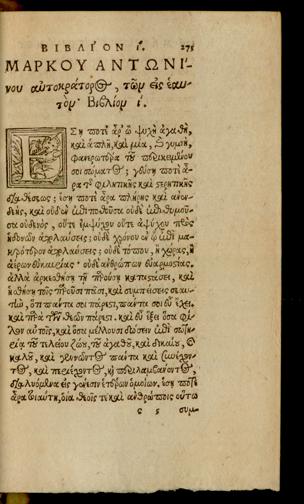 ΒΙΒΛΙΌΝ ί. 275
ΜΑΡΚΟΥ ΑΝΤΩΝΙ-
νου αὐτοκράτορος, τῶν εἰς ἑαυ-
τὸν Βιβλίον ί.
ΕΣῃ ποτὲ ἆρ' ὦ ψυχὴ ἀγαθὴ,
καὶ ἁπλῆ, καὶ μία, καὶ γυμνὴ,
φανερωτέρα τοῦ περικειμένου
σοι σώματος; γεύσῃ ποτὲ ἆ-
ρα τῆς φιλητικῆς καὶ στερκτικῆς
διαθέσεως; ἔσῃ ποτὲ ἆρα πλήρης καὶ ἀνεν-
δεὴς, καὶ οὐδὲν ἐπιποθοῦσα οὐδὲ ἐπιθυμοῦ-
σα οὐδενὸς, οὔτε ἐμψύχου οὔτε ἀψύχου πρὸς
ἡδονῶν ἀπολαύσεις; οὐδὲ χρόνου ἐν ᾧ ἐπὶ μα-
κρότερον ἀπολαύσεις; οὐδὲ τόπου, ἢ χώρας, ἢ
ἀέρων εὐκαιρίας; οὐδὲ ἀνθρώπων εὐαρμοστίας,
ἀλλὰ ἀρκεσθήσῃ τῇ παρούσῃ καταστάσει, καὶ
ἡσθήσῃ τοῖς παροῦσι πᾶσι, καὶ συμπείσεις σεαυ-
τὴν, ὅτι πάντα σοι πάρεστι, πάντα σοι εὖ ἔχει,
καὶ παρὰ τῶν θεῶν πάρεστι. καὶ εὖ ἕξει ὅσα φί-
λον αὐτοῖς, καὶ ὅσα μέλλουσι δώσειν ἐπὶ σωτη-
ρίᾳ τοῦ τελείου ζώου, τοῦ ἀγαθοῦ, καὶ δικαίου, καὶ
καλοῦ, καὶ γεννῶντος πάντα καὶ συνέχον-
τος, καὶ περιέχοντος, καὶ περιλαμβάνοντος,
διαλυόμενα εἰς γένεσιν ἑτέρων ὁμοίων. ἔσῃ ποτὲ
ἆρα τοιαύτη, οἵα θεοῖς τε καὶ ἀνθρώποις οὕτω
ς 5 συμ-